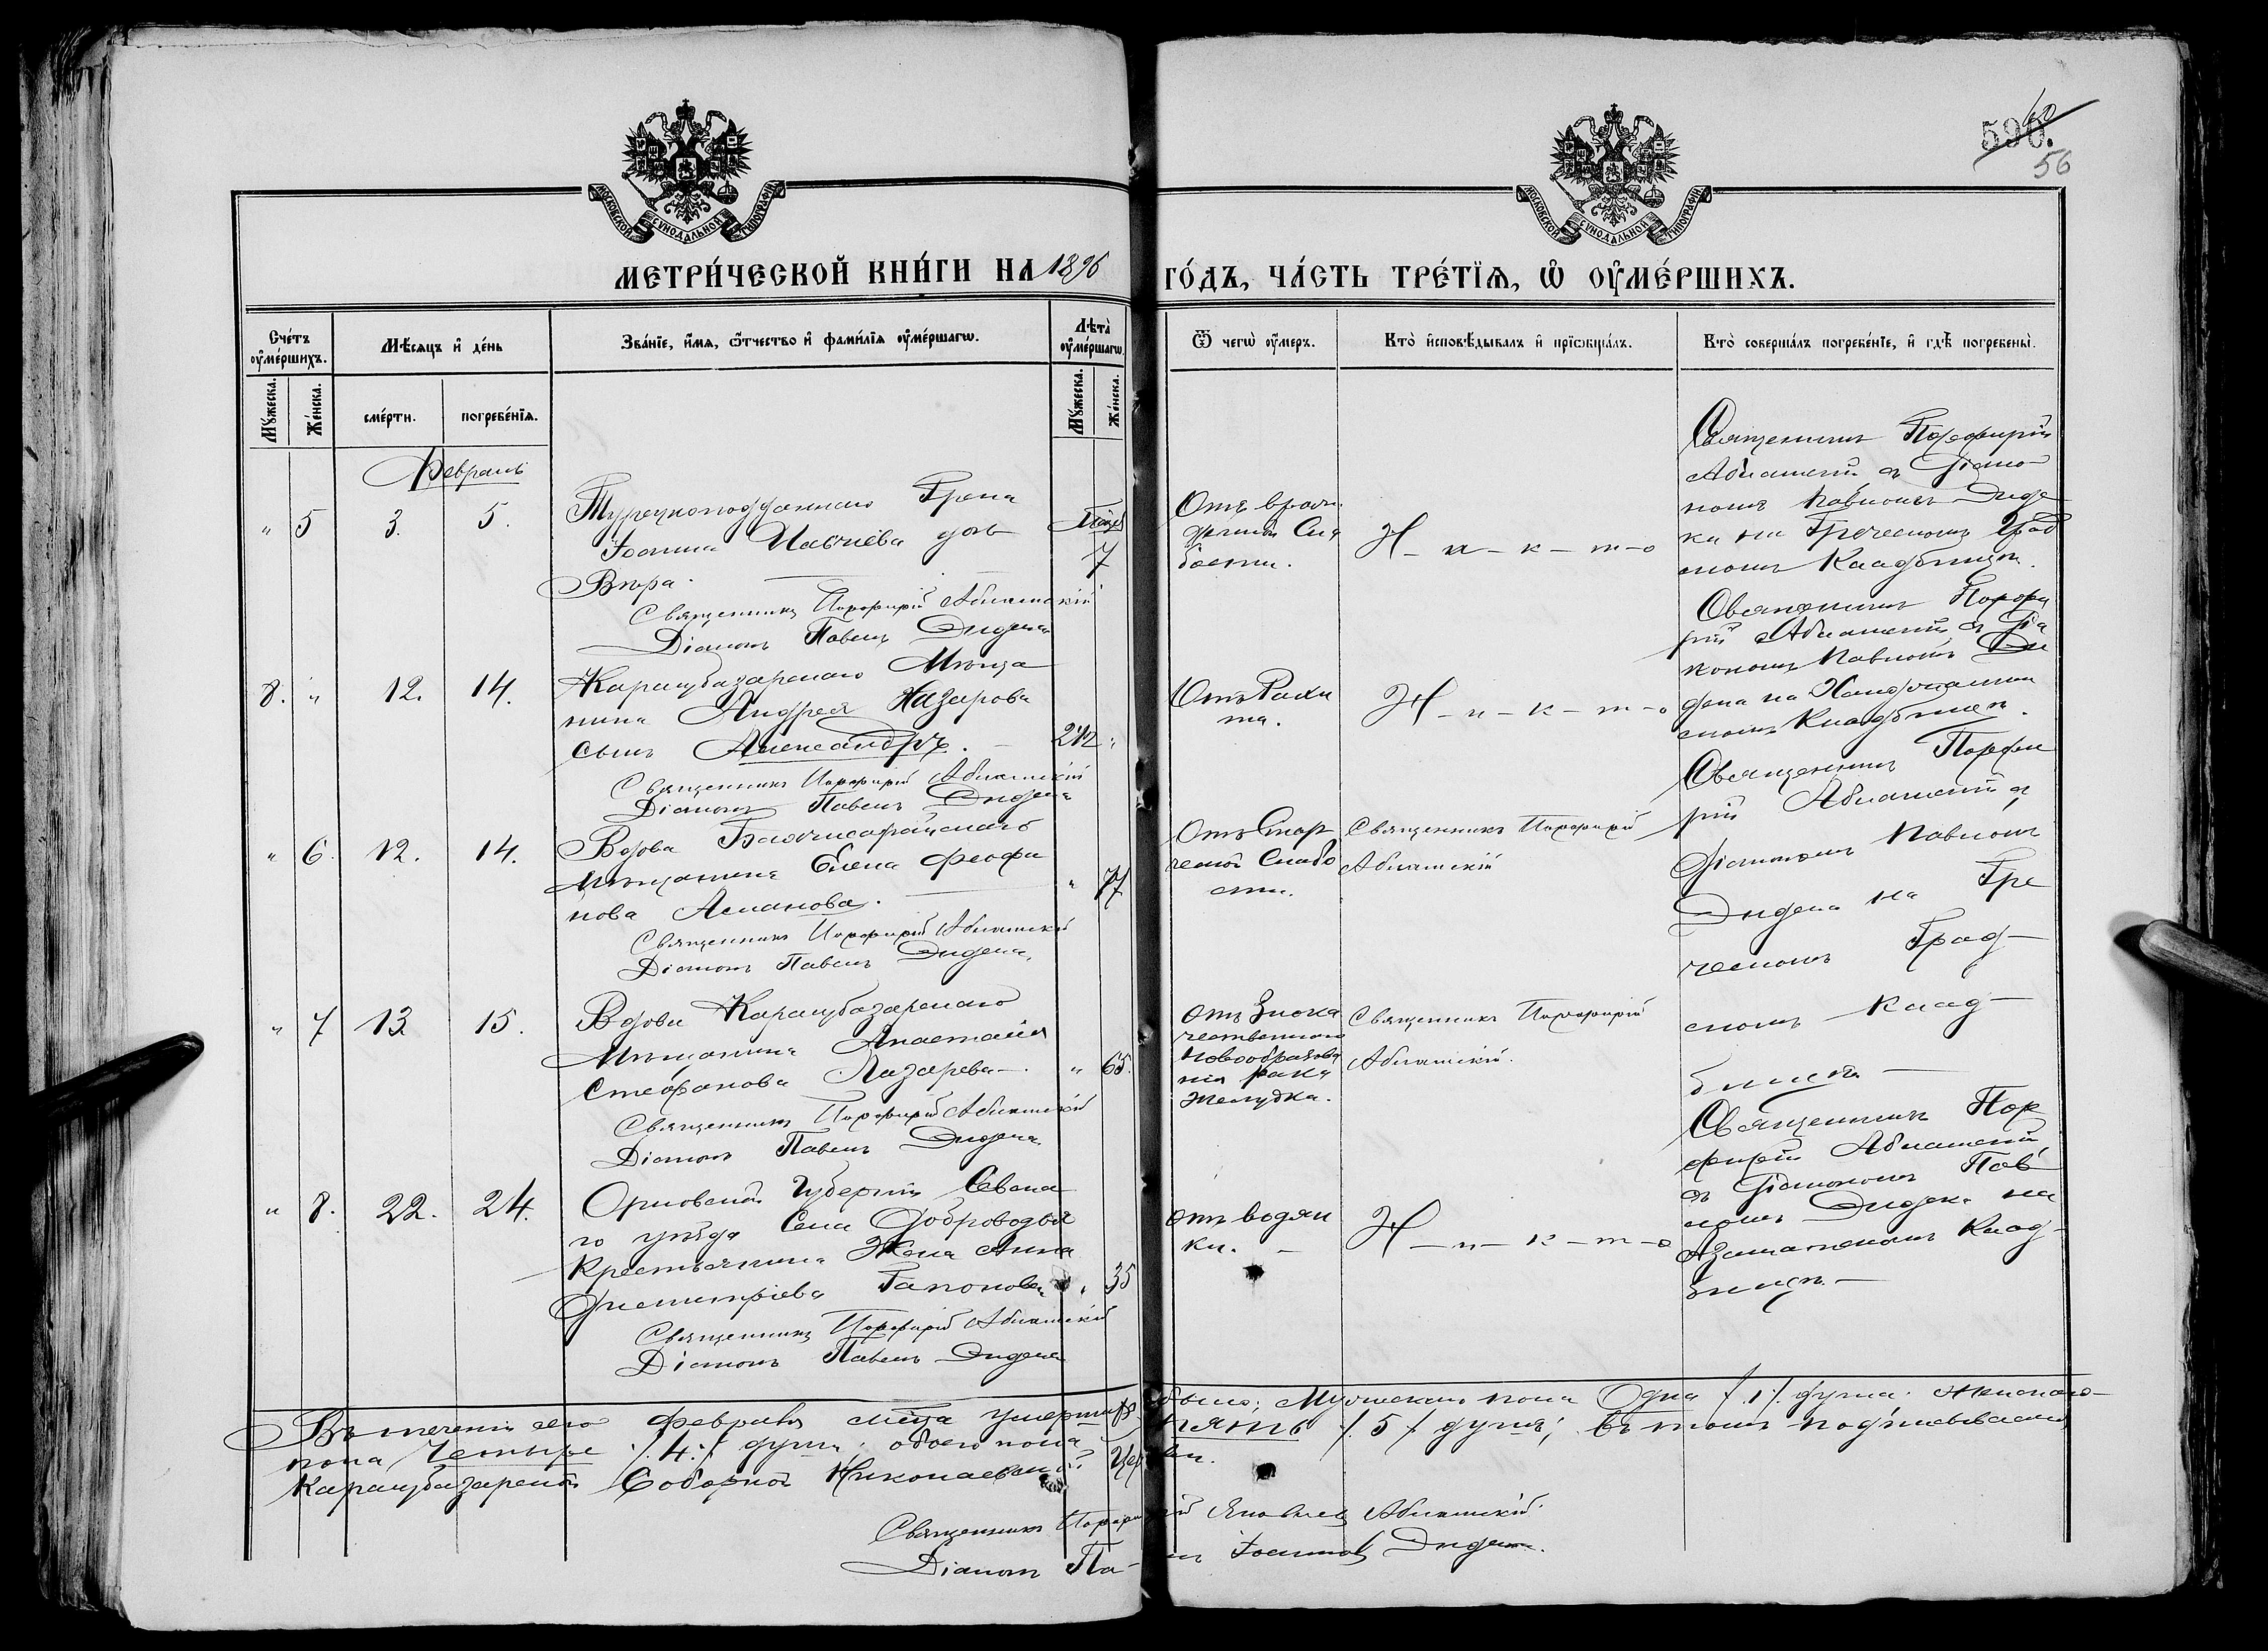 590.
60
56
МОСКОВСКОЙ СѴНОДАЛЬНОЙ ТИПОГРАФІИ
МОСКОВСКОЙ СѴНОДАЛЬНОЙ ТИПОГРАФІИ
МЕТРИ́ЧЕСКОЙ КНИ́ГИ НА 1896 ГО́ДЪ, ЧА́СТЬ ТРЕ́ТІѦ, Ѡ҆ ОУ҆МЕ́РШИХЪ.
Сче́тъ оу҆ме́ршихъ.
Мѣ́сяцъ и҆ де́нь
Зва́нїе, и҆́мѧ, ѻ҆́тчество и҆ фами́лїѧ оу҆ме́ршагѡ.
Лѣта̀ оу҆ме́ршагѡ.
Ѿ чегѡ̀ оу҆́меръ.
Кто̀ и҆сповѣ́дывалъ и҆ прїѡбща́лъ.
Кто̀ соверша́лъ погребе́нїе, и҆ гдѣ̀ погребены̀.
Мꙋ́жеска.
Же́нска.
сме́рти.
погребе́нїѧ.
Мꙋ́жеска.
Же́нска.
Февраль
" 5 3. 5.
Турецкоподданнаго Грека
Іоанна дочь
Вѣра.
7
Священникъ Порфирій Абламскій
Діаконъ Павелъ Дидека
Отъ врож
денной Сла
бости.
Н-и-к-т-о
Священникъ Порфирій
Абламскій съ Діако
номъ Павломъ Диде
ка на Греческомъ Град
скомъ Кладбищѣ.
8. " 12. 14.
Карасубазарскаго Мѣща
нина Андрея Назарова
сынъ Александръ.
Священникъ Порфирій Абламскій
Діаконъ Павелъ Дидека
Отъ Рахи
та.
Н-и-к-т-о
Священникъ Порфи
рій Абламскій съ Діа
кономъ Павломъ Ди
дека на
скомъ Кладбищѣ.
" 6. 12. 14.
Вдова Бахчисарайскаго
Мѣщанина Елена Феофи
лова Асланова.
" 77
Священникъ Порфирій Абламскій
Діаконъ Павелъ Дидека
Отъ Стар
ческой Слабо
сти.
Священникъ Порфирій
Абламскій
Священникъ Порфи
рій Абламскій съ
Діакономъ Павломъ
Дидека на Гре
ческомъ Град
скомъ Клад
бищѣ
" 7 13 15.
Вдова Карасубазарскаго
Мѣщанина Анастасія
Стефанова Лазарева.
" 65.
Священникъ Порфирій Абламскій
Діаконъ Павелъ Дидека
Отъ Злока
чественнаго
Новообразова
нія рака
желудка.
Священникъ Порфирій
Абламскій.
" 8. 22. 24.
Орловской Губерніи Сѣвска
го уѣзда Села Доброводья
Крестьянина Жена Анна
Димитріева Гапонова
" 35
Священникъ Порфирій Абламскій
Діаконъ Павелъ Дидека
Отъ водян
ки.
Н-и-к-т-о
Священникъ Пор
фирій Абламскій
съ Діакономъ Пав
ломъ Дидека на
Клад
бищѣ.
Въ теченіи сего Февраля мѣсяца умершихъ было; Мужескаго пола Одна /.1/. душа. Женскаго
пола Четыре /.4./ души; обоего пола пять /.5/ душъ; въ томъ подписываемся
Карасубазарской Соборной Николаевской Церкви.
Священникъ Порфирій Яковлевъ Абламскій
Діаконъ Павелъ Іоанновъ Дидека.